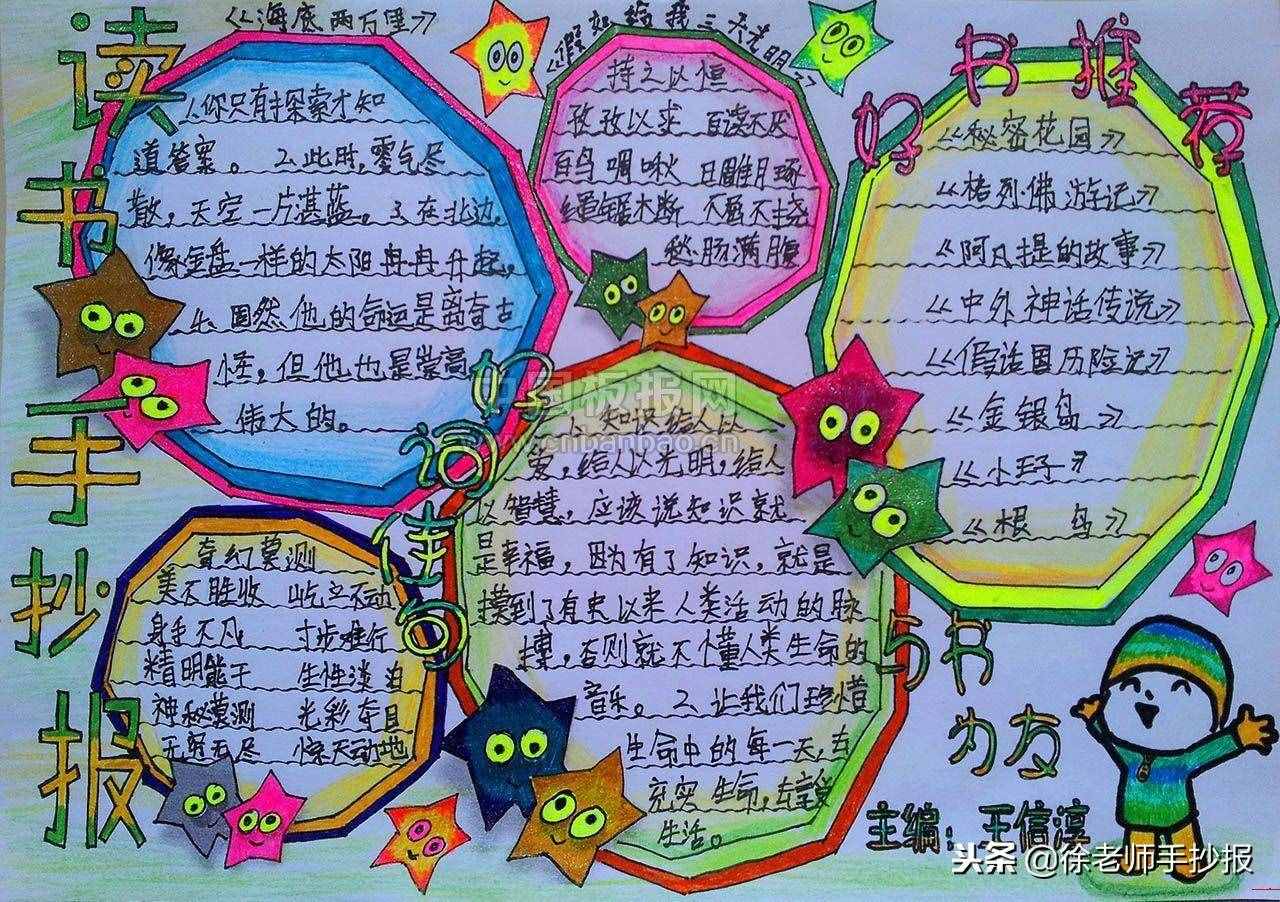 读书手抄报
《海底两万里》
1、你只有探索才知
道答案。 2、此时，雾气尽
散，天空一片湛蓝。3、在北边，
像金盘一样的太阳冉冉升起，
4、固然他的命运是离奇古
怪，但他也是崇高
伟大的。
《假如给我三天光明》
持之以恒
孜孜以求 百读不厌
百鸟啁啾 日雕月琢
绳锯木断 不屈不挠
愁肠满腹
好书推荐
《秘密花园》
《格列佛游记》
《阿凡提的故事》
《中外神话传说》
《假话国历险记》
《金银岛》
《小王子》
《根鸟》
好词佳句
奇幻莫测
美不胜收 屹立不动
身手不凡 寸步难行
精明能干 生性淡泊
神秘莫测 光彩夺目
无穷无尽 惊天动地
1、知识给人以
爱，给人以光明，给人
以智慧，应该说知识就
是幸福，因为有了知识，就是
摸到了有史以来人类活动的脉
搏，否则就不懂人类生命的
音乐。 2、让我们珍惜
生命中的每一天，去
充实生命，去享受
生活。
与书
为友
主编：王信淳
中国板报网
www.cnbanbao.cn
头条@徐老师手抄报